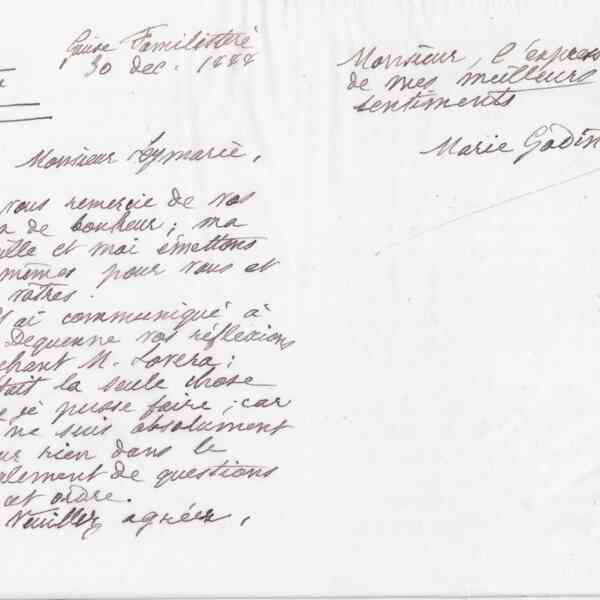 Guise Familistère
30 dec. 1888
Monsieur Leymarie,
vous remercie de vos
x de bonheur; ma
ille et moi émettons
mêmes pour vous et
vôtres.
J'ai communiqué à
Dequenne vos réflexions
chant M. Lovera;
tait la seule chose
e je pusse faire; car
ne suis absolument
ur rien dans le
glement de questions
cet ordre.
Veuillez agréer,
Monsieur, l'express
de mes meilleurs
sentiments
Marie Godin